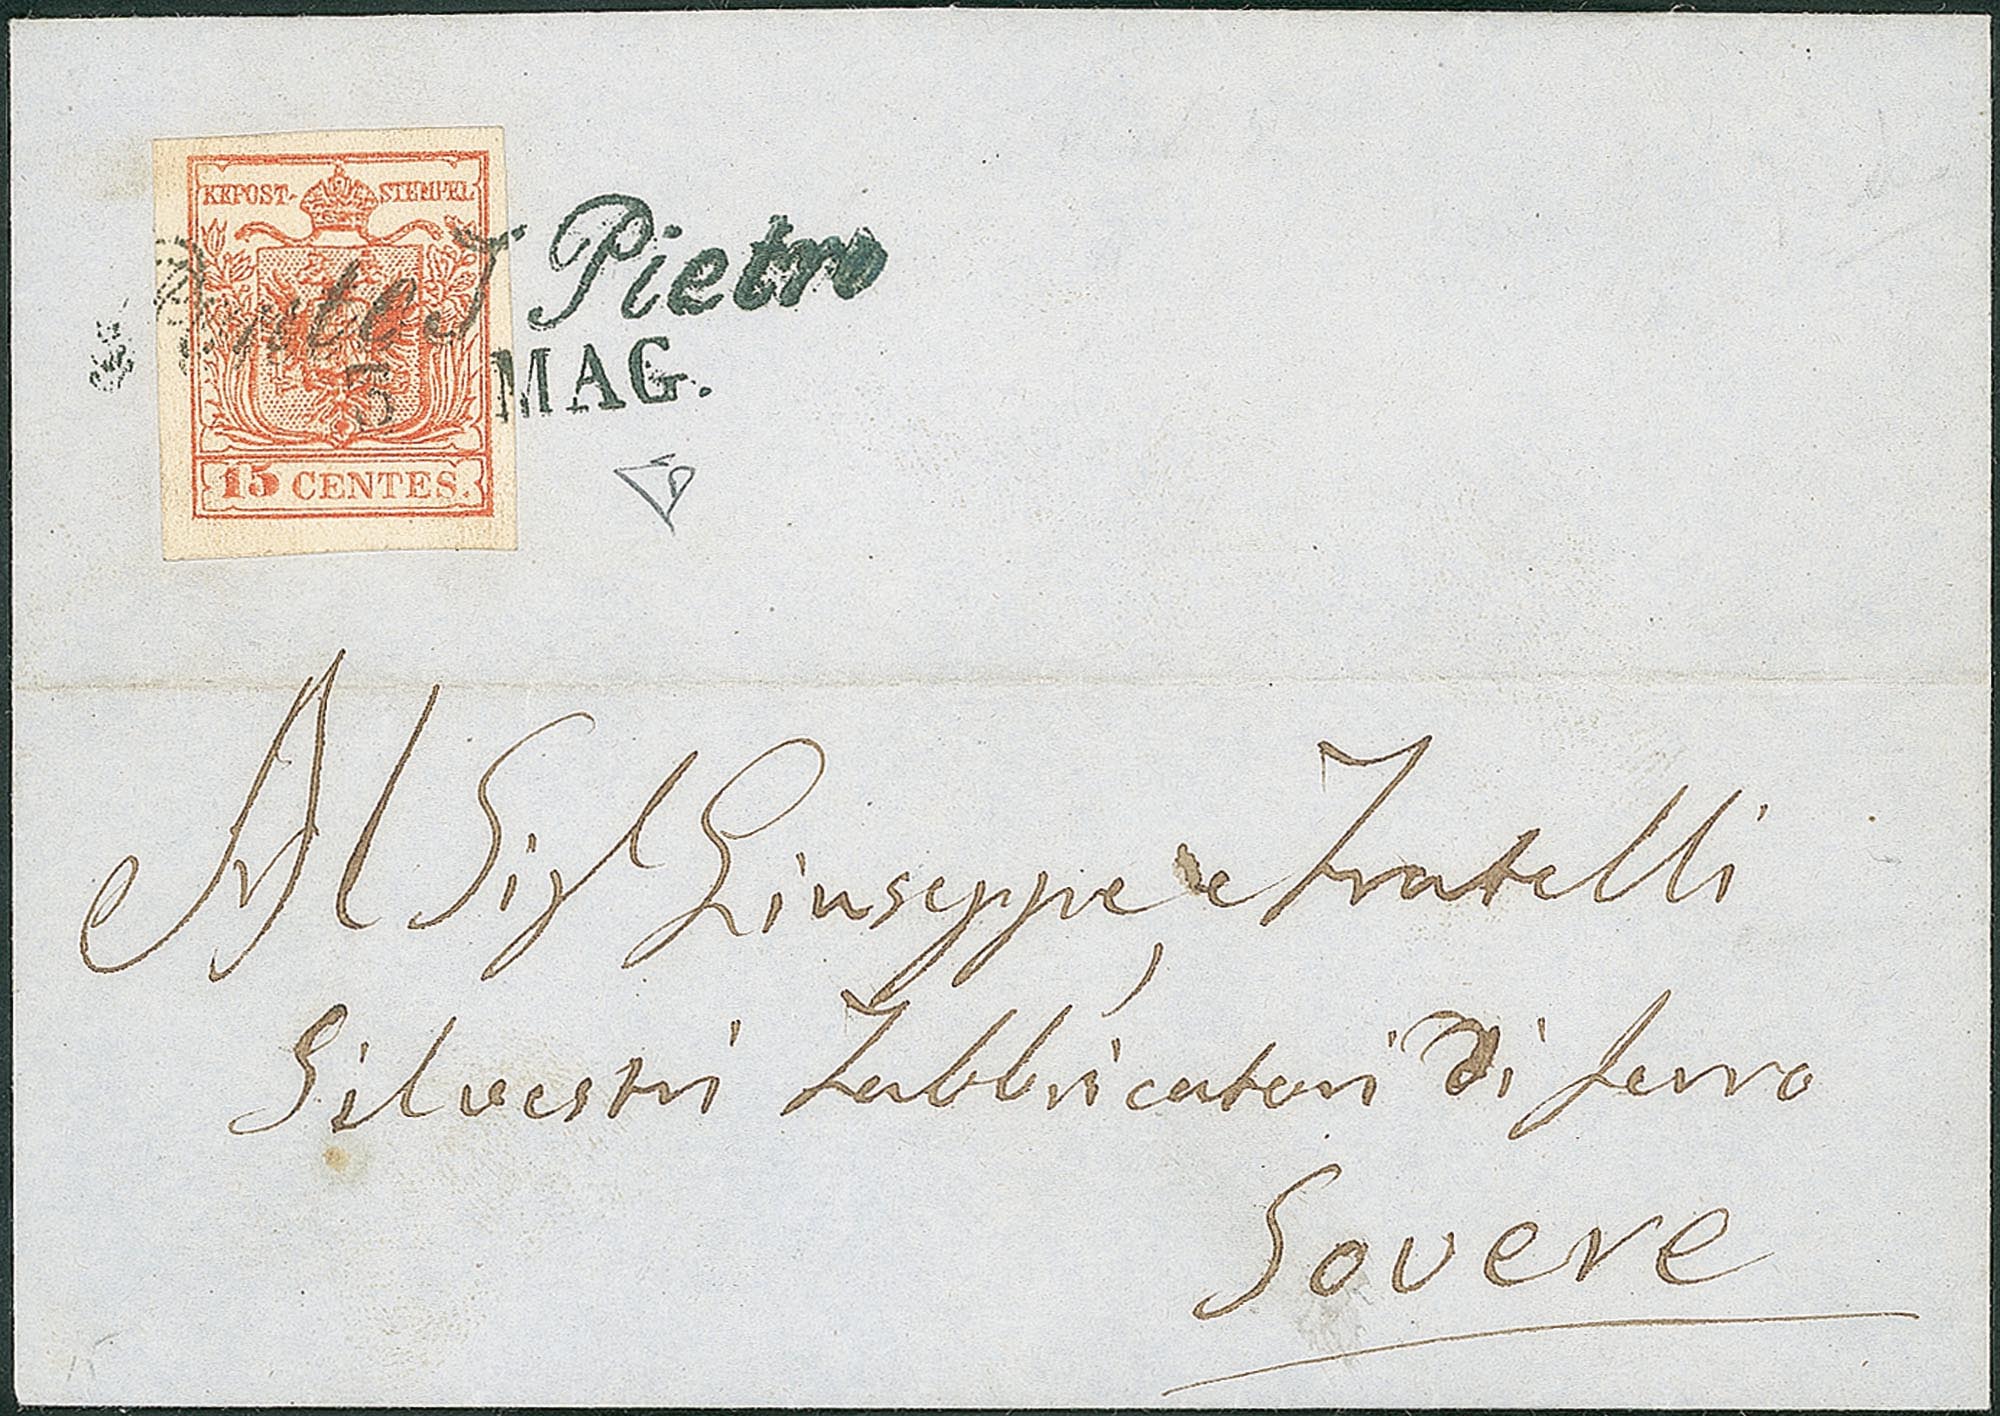 KKPOST-STEMPEL
Ponte S Pietro
5 MAG.
15 CENTES.
Al Sigl Giuseppe, e Fratelli
Silvestri Fabbricatori di ferro
Sovere